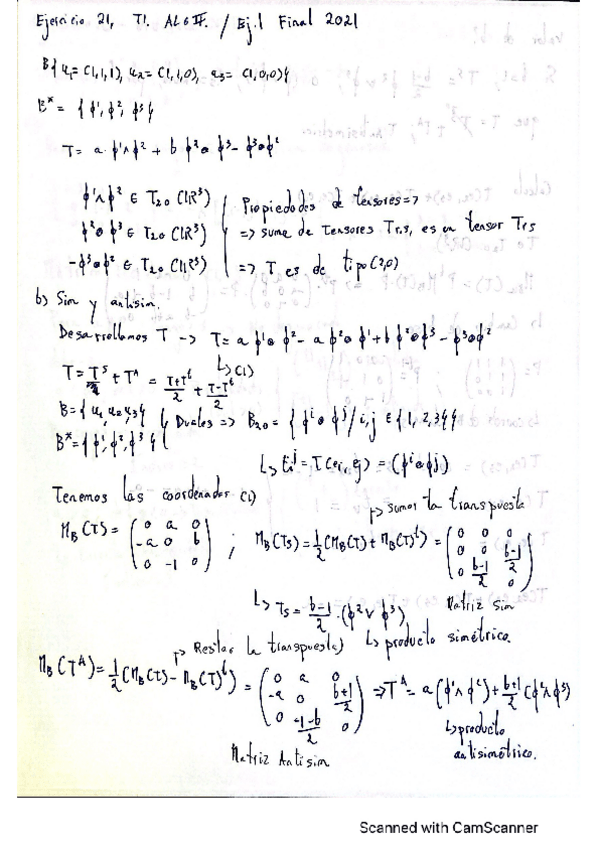 Ejercicio 21, T1. ALGII. / Ej.1 Final 2021
B{u₁=(1,1,1), u₂=(1,1,0), u₃=(1,0,0)}
B* = {ϕ¹, ϕ², ϕ³}
T = a·ϕ¹∧ϕ² + b ϕ²⊗ϕ³ - ϕ³⊗ϕ²
ϕ¹∧ϕ² ∈ T₂₀(ℝ³)
ϕ²⊗ϕ³ ∈ T₂₀(ℝ³)
-ϕ³⊗ϕ² ∈ T₂₀(ℝ³)
Propiedades de tensores =>
=> suma de Tensores Tr,s, es un tensor Trs
=> T es de tipo (2,0)
b) Sim y antisim.
Desarrollamos T -> T = a ϕ¹⊗ϕ² - a ϕ²⊗ϕ¹ + b ϕ²⊗ϕ³ - ϕ³⊗ϕ²
↳ (1)
T = Tˢ + Tᴬ = (T+Tᵗ)/2 + (T-Tᵗ)/2
B = {u₁, u₂, u₃}
B* = {ϕ¹, ϕ², ϕ³}
Duales => B₂₀ = {ϕⁱ⊗ϕʲ / i,j ∈ {1,2,3}}
↳ tᵢʲ = T(eᵢ, eⱼ) = (ϕⁱ⊗ϕʲ)
Tenemos las coordenadas (1)
↱ sumar la transpuesta
M_B(T) = (0 a 0; -a 0 b; 0 -1 0) ; M_B(Ts) = 1/2 (M_B(T) + M_B(T)ᵗ) = (0 0 0; 0 0 (b-1)/2; 0 (b-1)/2 0)
Matriz sim
↳ Ts = (b-1)/2 · (ϕ²∨ϕ³)
↳ producto simétrico.
↱ Restar la transpuesta
M_B(Tᴬ) = 1/2 (M_B(T) - M_B(T)ᵗ) = (0 a 0; -a 0 (b+1)/2; 0 (-1-b)/2 0) => Tᴬ = a(ϕ¹∧ϕ²) + (b+1)/2 (ϕ²∧ϕ³)
↳ producto
antisimétrico.
Matriz Antisim
Scanned with CamScanner